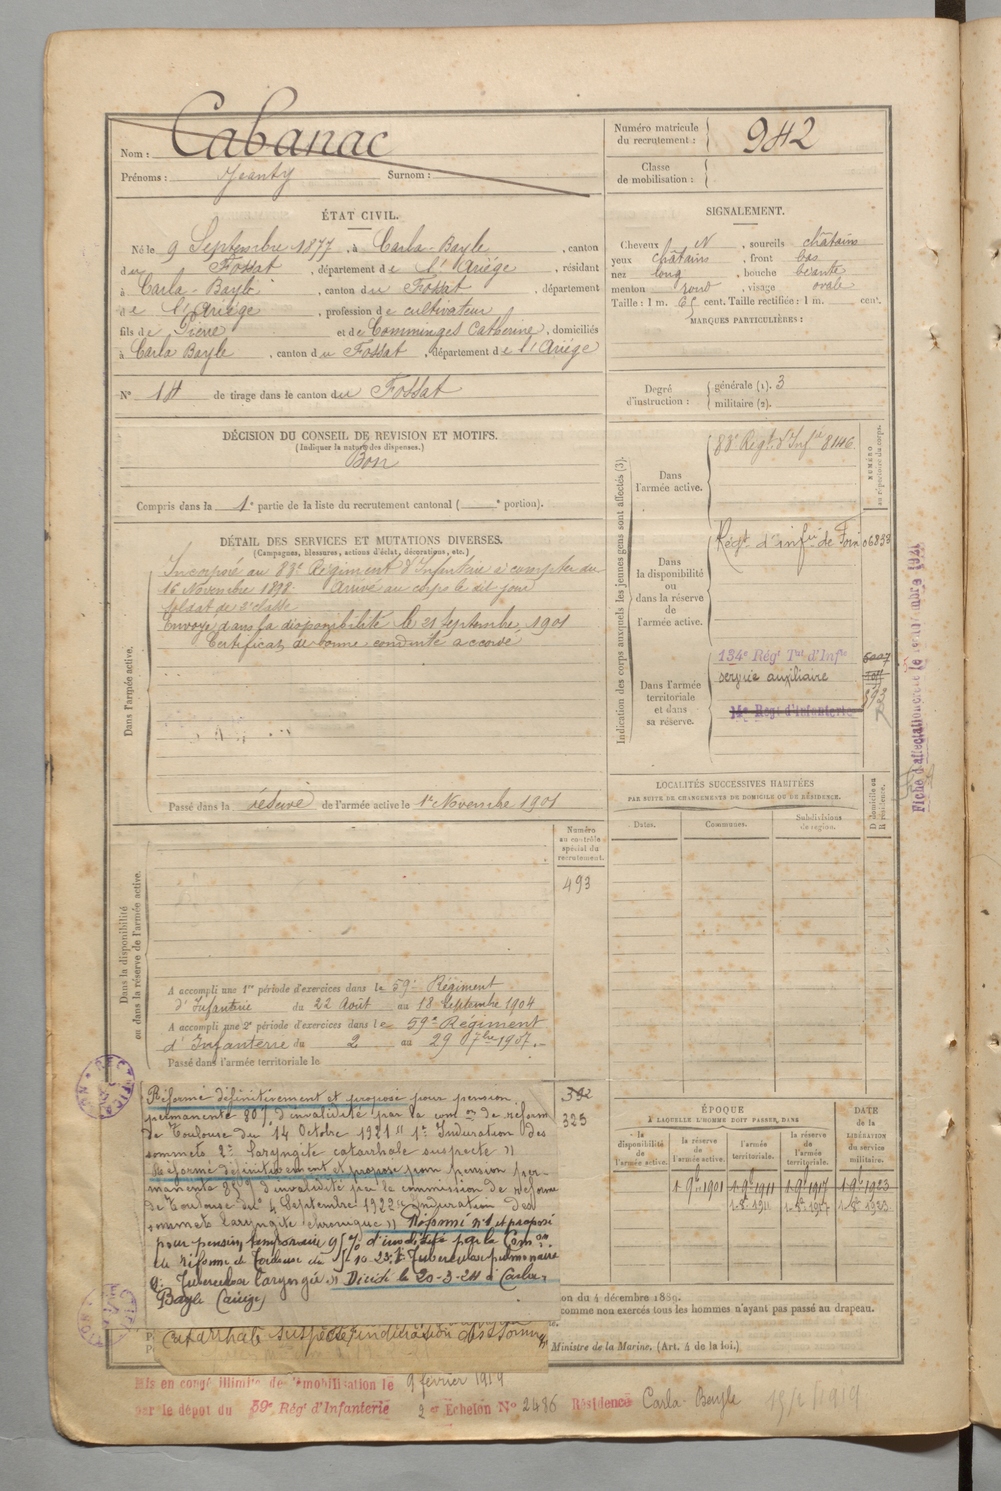 Nom : Cabanac
Prénoms : Jeanty Surnom :
Numéro matricule du recrutement : 942
Classe de mobilisation :
ÉTAT CIVIL.
Né le 9 Septembre 1877, à Carla-Bayle, canton
du Fossat, département de l'Ariège, résidant
à Carla-Bayle, canton du Fossat, département
de l'Ariège, profession de cultivateur
fils de Pierre et de Comminges Catherine, domiciliés
à Carla Bayle, canton du Fossat, département de l'Ariège
N° 14 de tirage dans le canton du Fossat
SIGNALEMENT.
Cheveux N, sourcils châtains
yeux châtains, front bas
nez long, bouche béante
menton rond, visage ovale
Taille : 1 m. 65 cent. Taille rectifiée : 1 m. cent.
MARQUES PARTICULIÈRES :
Degré d'instruction : générale (1). 3
militaire (2).
DÉCISION DU CONSEIL DE REVISION ET MOTIFS.
(Indiquer la nature des dispenses.)
Bon
Compris dans la 1e partie de la liste du recrutement cantonal ( e portion).
DÉTAIL DES SERVICES ET MUTATIONS DIVERSES.
(Campagnes, blessures, actions d'éclat, décorations, etc.)
Dans l'armée active.
Incorporé au 88e Régiment d'Infanterie à compter du
16 Novembre 1898 Arrivé au corps le dit jour
soldat de 2e classe
Envoyé dans la disponibilité le 21 Septembre 1901
Certificat de bonne conduite accordé
Passé dans la réserve de l'armée active le 1er Novembre 1901
Indication des corps auxquels les jeunes gens sont affectés (3).
NUMÉRO au répertoire du corps.
Dans l'armée active.
88e Régt d'Infie 8146
Dans la disponibilité ou dans la réserve de l'armée active.
Régt d'infie de Foix 06838
Dans l'armée territoriale et dans sa réserve.
134e Régt Tal d'Infie
service auxiliaire
14e Régt d'Infanterie
Fiche d'affectation
LOCALITÉS SUCCESSIVES HABITÉES
PAR SUITE DE CHANGEMENTS DE DOMICILE OU DE RÉSIDENCE.
Dates. Communes. Subdivisions de région. D domicile ou R résidence.
Dans la disponibilité ou dans la réserve de l'armée active.
Numéro au contrôle spécial du recrutement.
493
A accompli une 1re période d'exercices dans le 59e Régiment
d'Infanterie du 22 Août au 18 Septembre 1904
A accompli une 2e période d'exercices dans le 59e Régiment
d'Infanterie du 2 au 29 7bre 1907.
Passé dans l'armée territoriale le
Réformé définitivement et proposé pour pension
permanente 80% d'invalidité par la com on de réforme
de Toulouse du 14 Octobre 1921 "1° Induration des
sommets 2° laryngite catarrhale suspecte"
Réformé définitivement et proposé pour pension per-
manente 85% d'invalidité par la commission de réforme
de Toulouse du 4 Septembre 1922 "Induration des
sommets laryngite chronique" Réformé n°1 et proposé
pour pension temporaire 95% d'invalidité par la Com on
de réforme de Toulouse du 5-10-23. 1° Tuberculose pulmonaire
2° Tuberculose laryngée" Décédé le 20-3-24 à Carla-
Bayle (Ariège)
catarrhale suspecte, induration des sommets
392
325
ÉPOQUE
À LAQUELLE L'HOMME DOIT PASSER DANS
DATE de la LIBÉRATION du service militaire.
la disponibilité de l'armée active. la réserve de l'armée active. l'armée territoriale. la réserve de l'armée territoriale.
1 9bre 1901 1 9bre 1911 1 9bre 1917 1 9bre 1923
on du 4 décembre 1889.
comme non exercés tous les hommes n'ayant pas passé au drapeau.
Ministre de la Marine. (Art. 4 de la loi.)
Mis en congé illimité de démobilisation le 9 février 1919
par le dépot du 59e Régt d'Infanterie 2 e Echelon N° 2486 Résidence Carla-Bayle